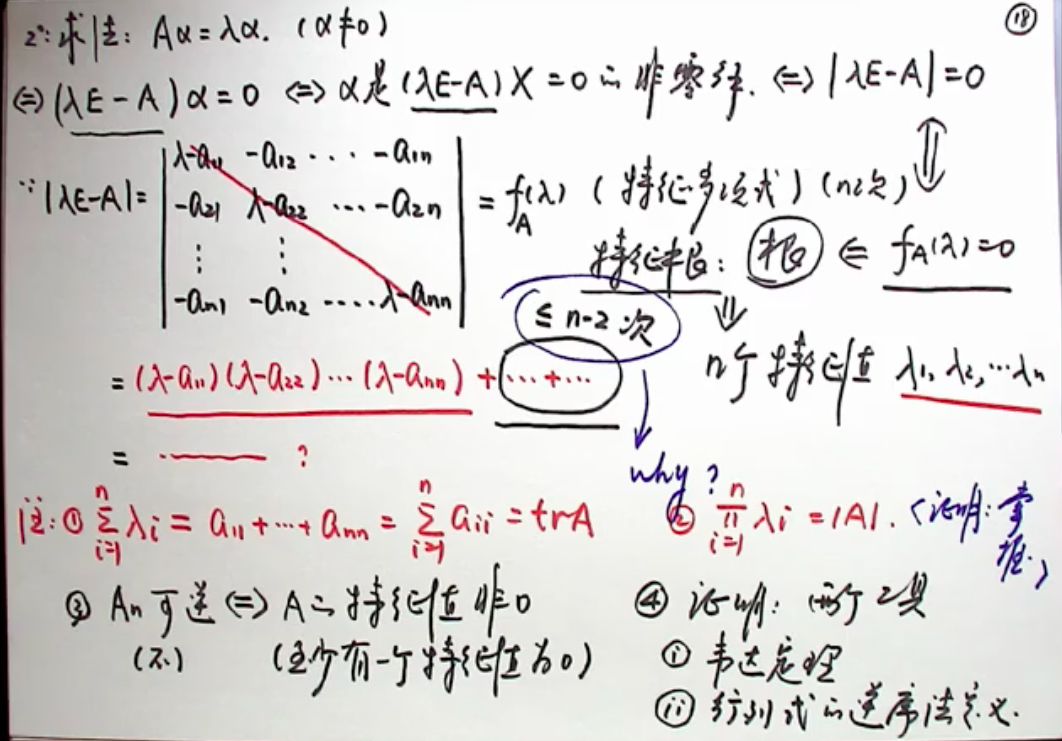 ⑱
2°: 求法: Aα=λα. (α≠0)
⇔ (λE-A)α=0 ⇔ α是(λE-A)X=0的非零解. ⇔ |λE-A|=0
∵ |λE-A|= | λ-a₁₁ -a₁₂ ··· -a₁ₙ
-a₂₁ λ-a₂₂ ··· -a₂ₙ
⋮ ⋮
-aₙ₁ -aₙ₂ ···· λ-aₙₙ | = f_A(λ) (特征多项式) (n次)
⇕
特征根: 根 ⇐ f_A(λ)=0
≤ n-2 次
⇓
n个特征值 λ₁, λ₂, ···λₙ
= (λ-a₁₁)(λ-a₂₂)···(λ-aₙₙ) + ···+···
why?
= ·—— ?
注: ① ∑ᵢ₌₁ⁿ λᵢ = a₁₁+···+aₙₙ = ∑ᵢ₌₁ⁿ aᵢᵢ = trA ② ∏ᵢ₌₁ⁿ λᵢ = |A|. (证明: 掌握.)
③ Aₙ可逆 ⇔ A的特征值非0
(不) (至少有一个特征值为0)
④ 证明: 两个工具
ⓘ 韦达定理
(ii) 行列式的逆序法定义.